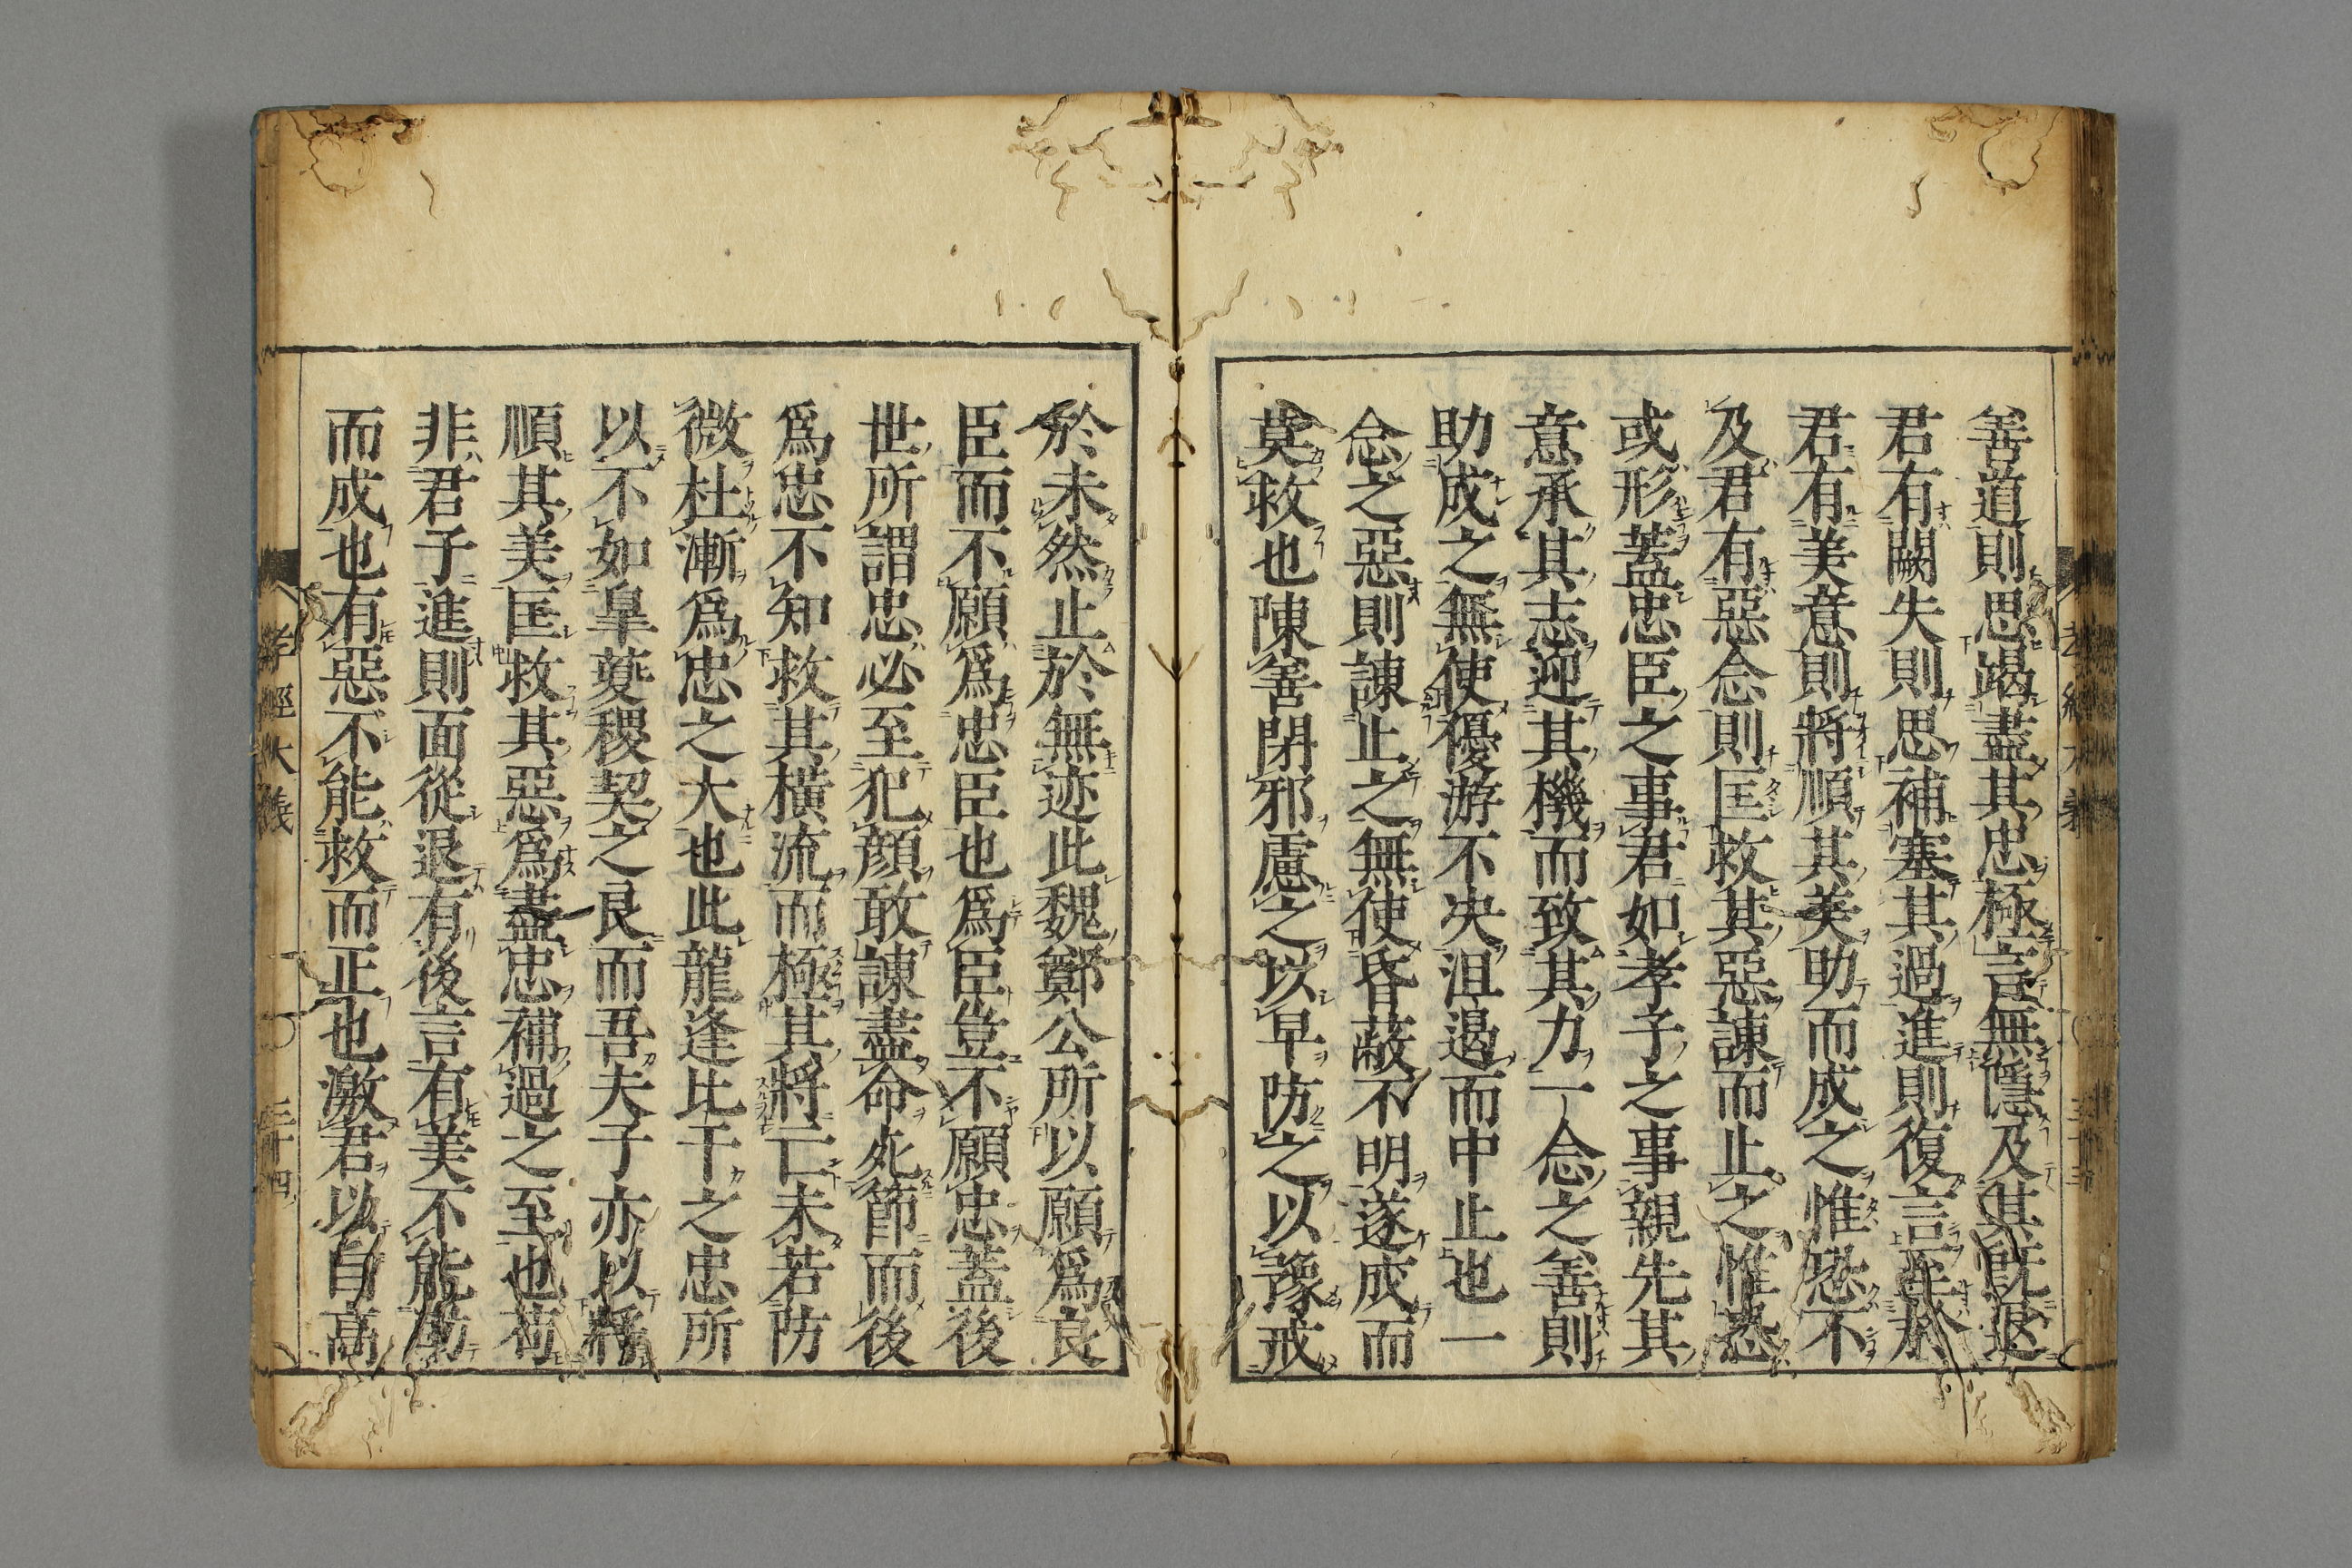 善道則思竭盡其忠極言無隱及其既退
君有闕失則思補塞其過進則復言至於
君有美意則將順其美助而成之惟恐不
及君有惡念則匡救其惡諫而止之惟恐
或形蓋忠臣之事君如孝子之事親先其
意承其志迎其機而致其力一念之善則
助成之無使優游不决沮遏而中止也一
念之惡則諫止之無使昏蔽不明遂成而
莫救也陳善閉邪慮之以早防之以豫戒
於未然止於無迹此魏鄭公所以願爲良
臣而不願爲忠臣也爲臣豈不願忠蓋後
世所謂忠必至犯顔敢諫盡命死節而後
爲忠不知救其横流而極其將亡未若防
微杜漸爲忠之大也此龍逢比干之忠所
以不如皐夔稷契之良而吾夫子亦以將
順其美匡救其惡爲盡忠補過之至也苟
非君子進則面從退有後言有美不能助
而成也有惡不能救而正也激君以自高
孝經大義
三十四